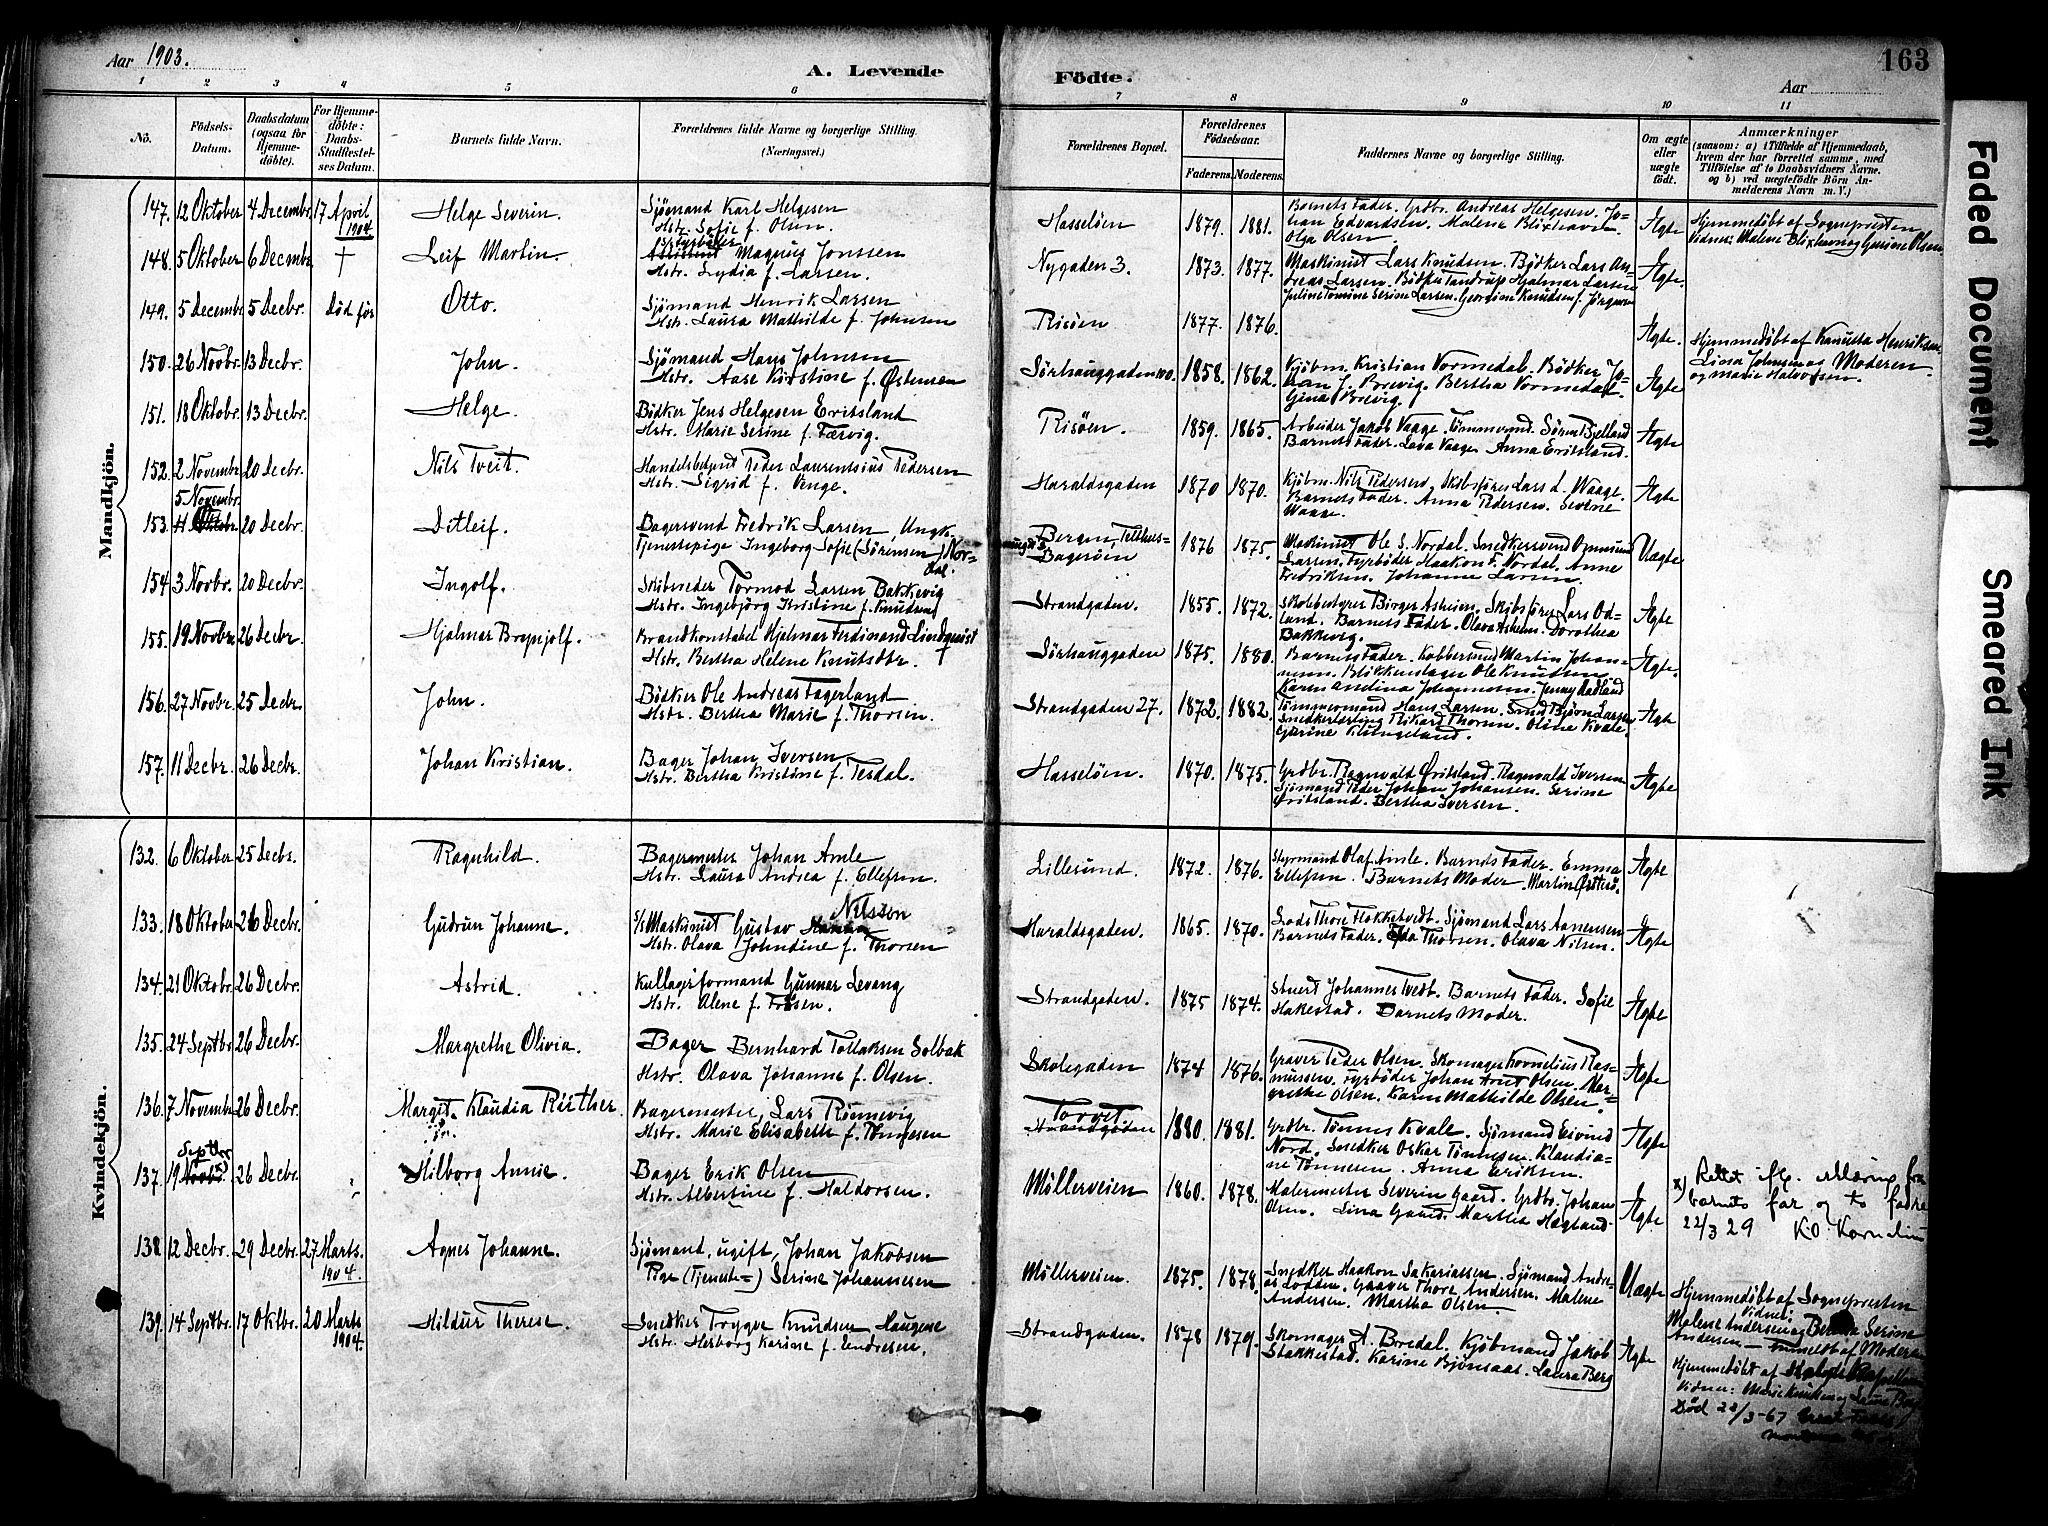 Aar 1903.
A. Levende Födte.
Aar
163
1 2 3 4 5 6 7 8 9 10 11
Nö.
Födsels-Datum.
Daabsdatum (ogsaa för Hjemmedöbte).
For Hjemmedöbte: Daabs-Stadfæstelses Datum.
Barnets fulde Navn.
Forældrenes fulde Navne og borgerlige Stilling. (Næringsvei.)
Forældrenes Bopæl.
Forældrenes Födselsaar.
Faderens. Moderens.
Faddernes Navne og borgerlige Stilling.
Om ægte eller uægte födt.
Anmærkninger (saasom: a) i Tilfælde af Hjemmedaab, hvem der har forrettet samme, med Tilföielse af to Daabsvidners Navne. og b) ved uægtefödte Börn Anmelderens Navn m. V.)
Mandkjön.
147. 12 Oktober 4 Decembr. 17 April 1904 Helge Severin. Sjömand Karl Helgesen Hstr. Sofie f. Olsen. Hasselöen 1879. 1881. Barnets Fader. Grdbr. Andreas Helgesen. Johan Edvardsen. Malene Blixhavn. Olga Olsen Ægte Hjemmedöbt af Sognepresten Vidner: Malene Blixhavn og Gurine Olsen
148. 5 Oktober 6 Decembr † Leif Martin. Fyrböder Magnus Jonssen Hstr. Lydia f. Larsen. Nygaden 3. 1873. 1877. Maskinist Lars Knudsen. Bödker Lars Andreas Larsen. Bödker Tandrup Hjalmar Larsen Juline Tomine Serine Larsen. Georgine Knudsen f. Jörgensen Ægte.
149. 5 December 5 Decbr. död för Otto. Sjömand Henrik Larsen Hstr. Laura Mathilde f. Johnsen Risöen 1877. 1876. Ægte. Hjemmedöbt af Kanutta Henriksen Lina Johnsen og Moderen og Marie Halvorsen.
150. 26 Novbr. 13 Decbr. John. Sjömand Hans Johnsen Hstr. Aase Kirstine f. Östensen Sörhauggaden 100. 1858. 1862. Kjöbm. Kristian Vormedal. Bödker Johan J. Brevig. Bertha Vormedal. Gina Brevig. Ægte
151. 18 Oktobr. 13 Decbr. Helge. Bödker Jens Helgesen Eritsland Hstr. Marie Serine f. Færvig. Risöen. 1859. 1865. Arbeider Jakob Vaage. Tömmermd. Sören Bjelland Barnets Fader. Lava Vaage. Anna Eritsland. Ægte
152. 2 Novembr 20 Decbr. Nils Tveit. Handelsbetjent Peder Laurentsius Pedersen Hstr. Sigrid f. Venge. Haraldsgaden 1870 1870. Kjöbm. Nils Pedersen. Skibsförer Lars L. Waage. Barnets Fader. Anna Pedersen. Severine Waage Ægte
153. 5 Novembr. 20 Decbr. Ditleif. Bagersvend Fredrik Larsen, Ungk. Tjenestepige Ingeborg Sofie (Sörensen) Nordal. Bergen Bagesöen 1876 1875. Maskinist Ole S. Nordal. Snedkersvend Ommund Larsen. Fyrböder Haakon F. Nordal. Anne Fredriksen. Johanne Larsen. Uægte
154. 3 Novbr. 20 Decbr. Ingolf. Skibsreder Tormod Larsen Bakkevig Hstr. Ingebjörg Kristine f. Knudsen Strandgaden. 1855. 1872. Skolebestyrer Birger Asheim. Skibsförer Lars Odland. Barnets Fader. Olava Asheim. Dorothea Bakkevig. Ægte
155. 19 Novbr. 26 Decbr. Hjalmar Brynjolf. Brandkonstabel Hjalmar Ferdinand Lindquist Hstr. Bertha Helene Knutsdtr. † Sörhauggaden 1875. 1880. Barnets Fader. Kobbersmed Martin Johannesen. Blikkenslager Ole Knudsen Karen Andina Johannesen. Jenny Aadland Ægte.
156. 27 Novbr. 25 Decbr John. Bödker Ole Andreas Fagerland Hstr. Bertha Marie f. Thorsen. Strandgaden 27. 1872. 1882. Tömmermand Hans Larsen. Smed Björn Larsen. Snedkerlærling Rikard Thorsen. Oline Kvale. Gurine Klungeland. Ægte
157. 11 Decbr. 26 Decbr. Johan Kristian. Bager Johan Iversen Hstr. Bertha Kristine f. Tesdal. Hasselöen. 1870. 1875. Grdbr. Ragnvald Öritsland. Ragnvald Iversen Sjömand Peder Johan Johansen. Serine Öritsland. Bertha Iversen. Ægte
Kvindekjön.
132. 6 Oktober 25 Decbr. Ragnhild. Bagermester Johan Amle Hstr. Laura Andrea f. Ellefsen. Lillesund. 1872. 1876. Styrmand Olaf Amle. Barnets Fader. Emma Ellefsen. Barnets Moder. Martin Östensö. Ægte
133. 18 Oktober 26 Decbr. Gudrun Johanne. Maskinist Gustav Nilsson Hstr. Olava Johndine f. Thorsen Haraldsgaden. 1865. 1870. Lods Thore Flokketvedt. Sjömand Lars Aanensen Barnets Fader. Thorsen. Olava Nilsen. Ægte
134. 21 Oktobr. 26 Decbr. Astrid. Kullagerformand Gunnar Levang Hstr. Alene f. Frösen. Strandgaden. 1875 1874. Stuert Johannes Tvedt. Barnets Fader. Sofie Hakestad. Barnets Moder. Ægte
135. 24 Septbr. 26 Decbr. Margrethe Olivia. Bager Bernhard Tollaksen Solbak Hstr. Olava Johanne f. Olsen. Skolegaden 1874 1876. Graver Peder Olsen. Skomager Kornelius Rasmussen. Fyrböder Johan Arnt Olsen. Margrethe Olsen. Karen Mathilde Olsen. Ægte
136. 7 Novembr 26 Decbr. Margit Klaudia Rüther. Bagermester Lars Rönnevig Hstr. Marie Elisabeth f. Tönnesen Torvet 1880. 1881. Grdbr. Tönnes Kvale. Sjömand Eivind Nord. Snedker Oskar Tönnesen. Klaudiane Tönnesen. Anna Eriksen. Ægte
137. 19 Septbr x) 26 Decbr. Hilborg Annie. Bager Erik Olsen Hstr. Albertine f. Haldorsen. Möllerveien 1860. 1878. Malermester Severin Gaard. Grdbr. Johan Olsen. Lina Gaard. Martha Hagland. Ægte x) Rettet ifg. erklæring fra barnets far og to faddre 22/3 29 K.O. Kornelius
138. 12 Decbr. 29 Decbr. 27 Marts. 1904. Agnes Johanne. Sjömand, ugift, Johan Jakobsen Pige (Tjeneste=) Serine Johannesen Möllerveien. 1875. 1878. Snedker Haakon Sakariassen. Sjömand Andreas Lodden. Graver Thore Andersen. Malene Andersen. Martha Olsen. Uægte Hjemmedöbt af Sognepresten Vidner: Malene Andersen og Serine Andersen — anmeldt af Moderen
139. 14 Septbr. 17 Oktbr. 20 Marts 1904. Hildur Therese. Snedker Trygve Knudsen Haugene Hstr. Herborg Karine f. Endresen. Strandgaden. 1878 1879. Skomager A. Bredal. Kjöbmand Jakob Stakkestad. Karine Björnsaas. Laura Berg Ægte Hjemmedöbt af Kapellan Vidner: Marie Knudsen og Laura Berg Död 22/3-67
Faded Document
Smeared Ink